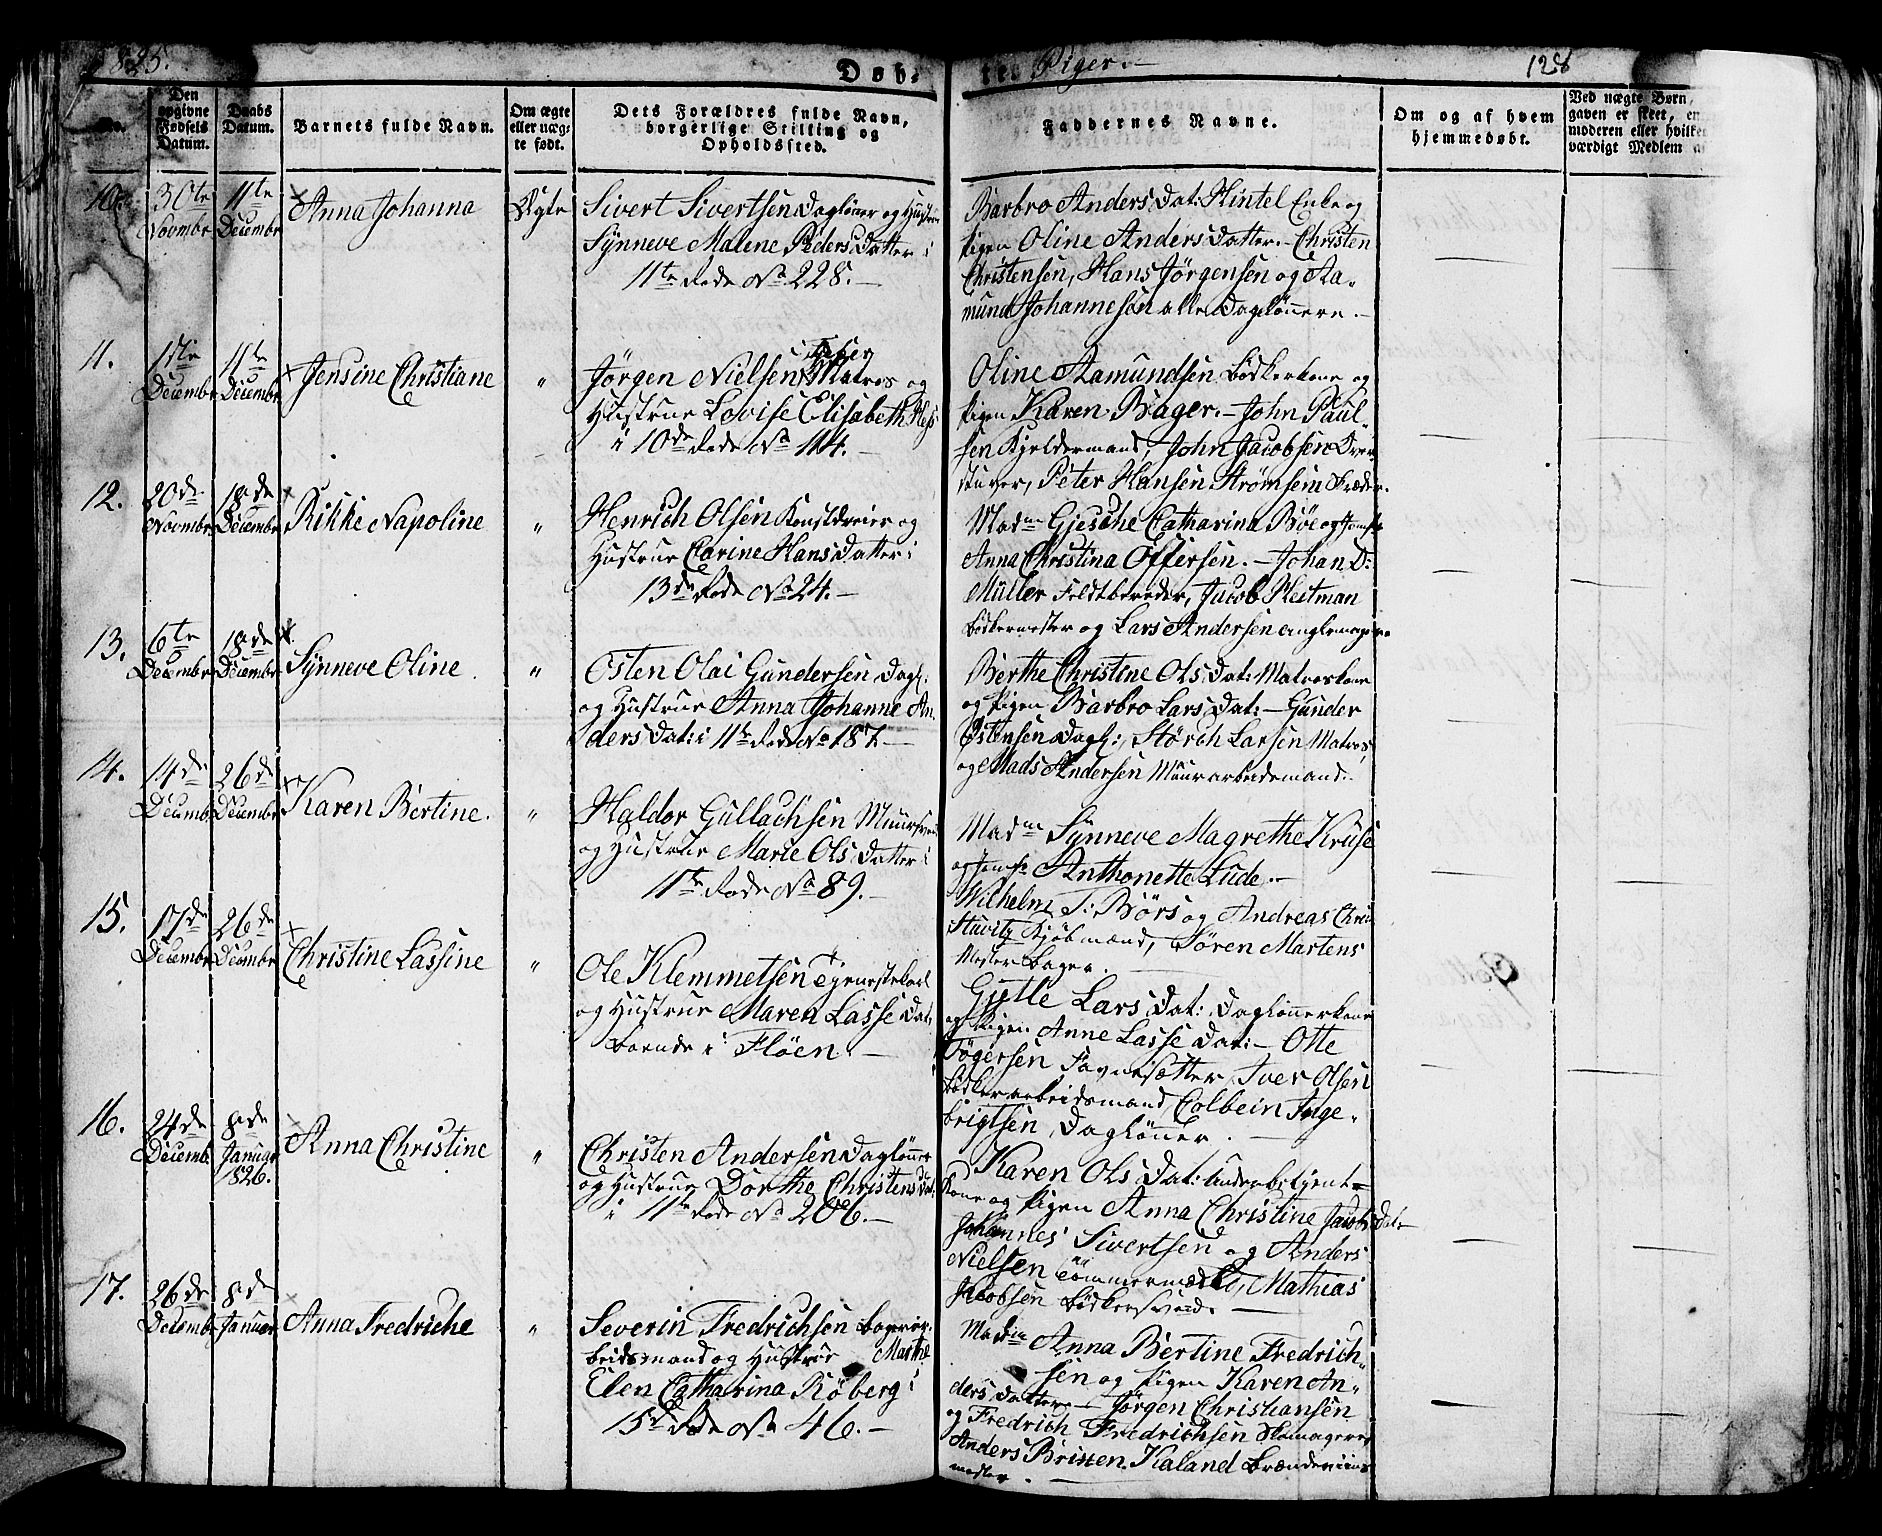 1825.
Døb-
te Piger.
128
No.
Den opgivne Fødsels Datum.
Daabs Datum.
Barnets fulde Navn.
Om ægte eller uæg-te født.
Dets Forældres fulde Navn, borgerlige Stilling og Opholdssted.
Faddernes Navne.
Om og af hvem hjemmedøbt.
Ved uægte Børn,
gaven er skeet, en
moderen eller hvilket
værdigt Medlem a
10.
30te Novmbr
11te Decembr
Anna Johanna
Ægte
Sivert Sivertsen Dagløner og Hustrue
Synneve Malene PedersDatter i
11te Rode No 228.
Barbro AndersDat: Hintel Enke og
Pigen Oline AndersDatter. Christen
Christensen, Hans Jørgensen og Aa-
mund Johannesen alle Daglønnere.
11.
1ste Decembr
11te Decembr
Jensine Christiane
"
Jørgen Nielsen Matros og
Hustrue Lovise Elisabeth
i 10de Rode No 114.
Oline Aamundsen Bødkerkone og
Pigen Karen Bager. John Paul-
sen Kjeldermand, John Jacobsen
stuver, Peter Hansen Strømsem
12.
20de Novmbr
18de Decembr
Rikke Napoline
"
Henrich Olsen Konstdreier og
Hustrue Carine HansDatter i
13de Rode No 24.
Madm Gjesche Catharina Böe og Jomfr
Anna Christina Offersen. Johan D:
Müller Feldtbereder, Jacob Pleitman
Bødkermester og Lars Andersen
13.
6te Decembr
18de Decembr
Synneve Oline
"
Osten Olai Gundersen Dagl:
og Hustrue Anna Johanne An-
dersDat: i 11te Rode No 187.
Berthe Christine OlsDat: Matroskone
og Pigen Barbro LarsDat: Gunder
Ostensen Dagl:, Størch Larsen Matros,
og Mads Andersen Muurarbeidsmand.
14.
14de Decembr
26de Decembr
Karen Bertine.
"
Haldor Gullachsen Muursvend
og Hustrue Marie OlsDatter i
11te Rode No 89.
Madm Synneve Magrethe Kruse
og Jomfr Anthonette Lude.
Wilhelm T: Børs og Andreas
Kjøbmænd, Søren Martens
Mester Bager.
15.
17de Decembr
26de Decembr
Christine Lassine
"
Ole Klemmetsen Tjenestekarl
og Hustrue Maren LasseDat:
boende i Fløen.
Gjetle LarsDat: Dagløñerkone
og Pigen Anne LasseDat: Otte
Tøgersen Favnesætter, Iver Olsen
Bødkerarbeidsmand, Colbein Inge-
brigtsen, Dagløñer.
16.
24de Decemb.
8de Januar 1826.
Anna Christine
"
Christen Andersen Dagløñer
og Hustrue Dorthe ChristensDat:
i 11te Rode No 206.
Karen OlsDat: Underbetjent-
Kone og Pigen Anna Christine JacobsDat:
Johannes Sivertsen og Anders
Nielsen Tömmermænd, Mathias
Jacobsen Bødkersvend.
17.
26de Decembr
8de Januar
Anna Fredriche
"
Severin Fredrichsen Bagerar-
beidsmand og Hustrue Marthe
Elen Catharina Røberg i
15de Rode No 46.
Madm Anna Bertine Fredrich-
sen og Pigen Karen An-
dersDatter. Jørgen Christiansen
og Fredrich Fredrichsen Skomagere
Anders Brisken Kaland
mester.